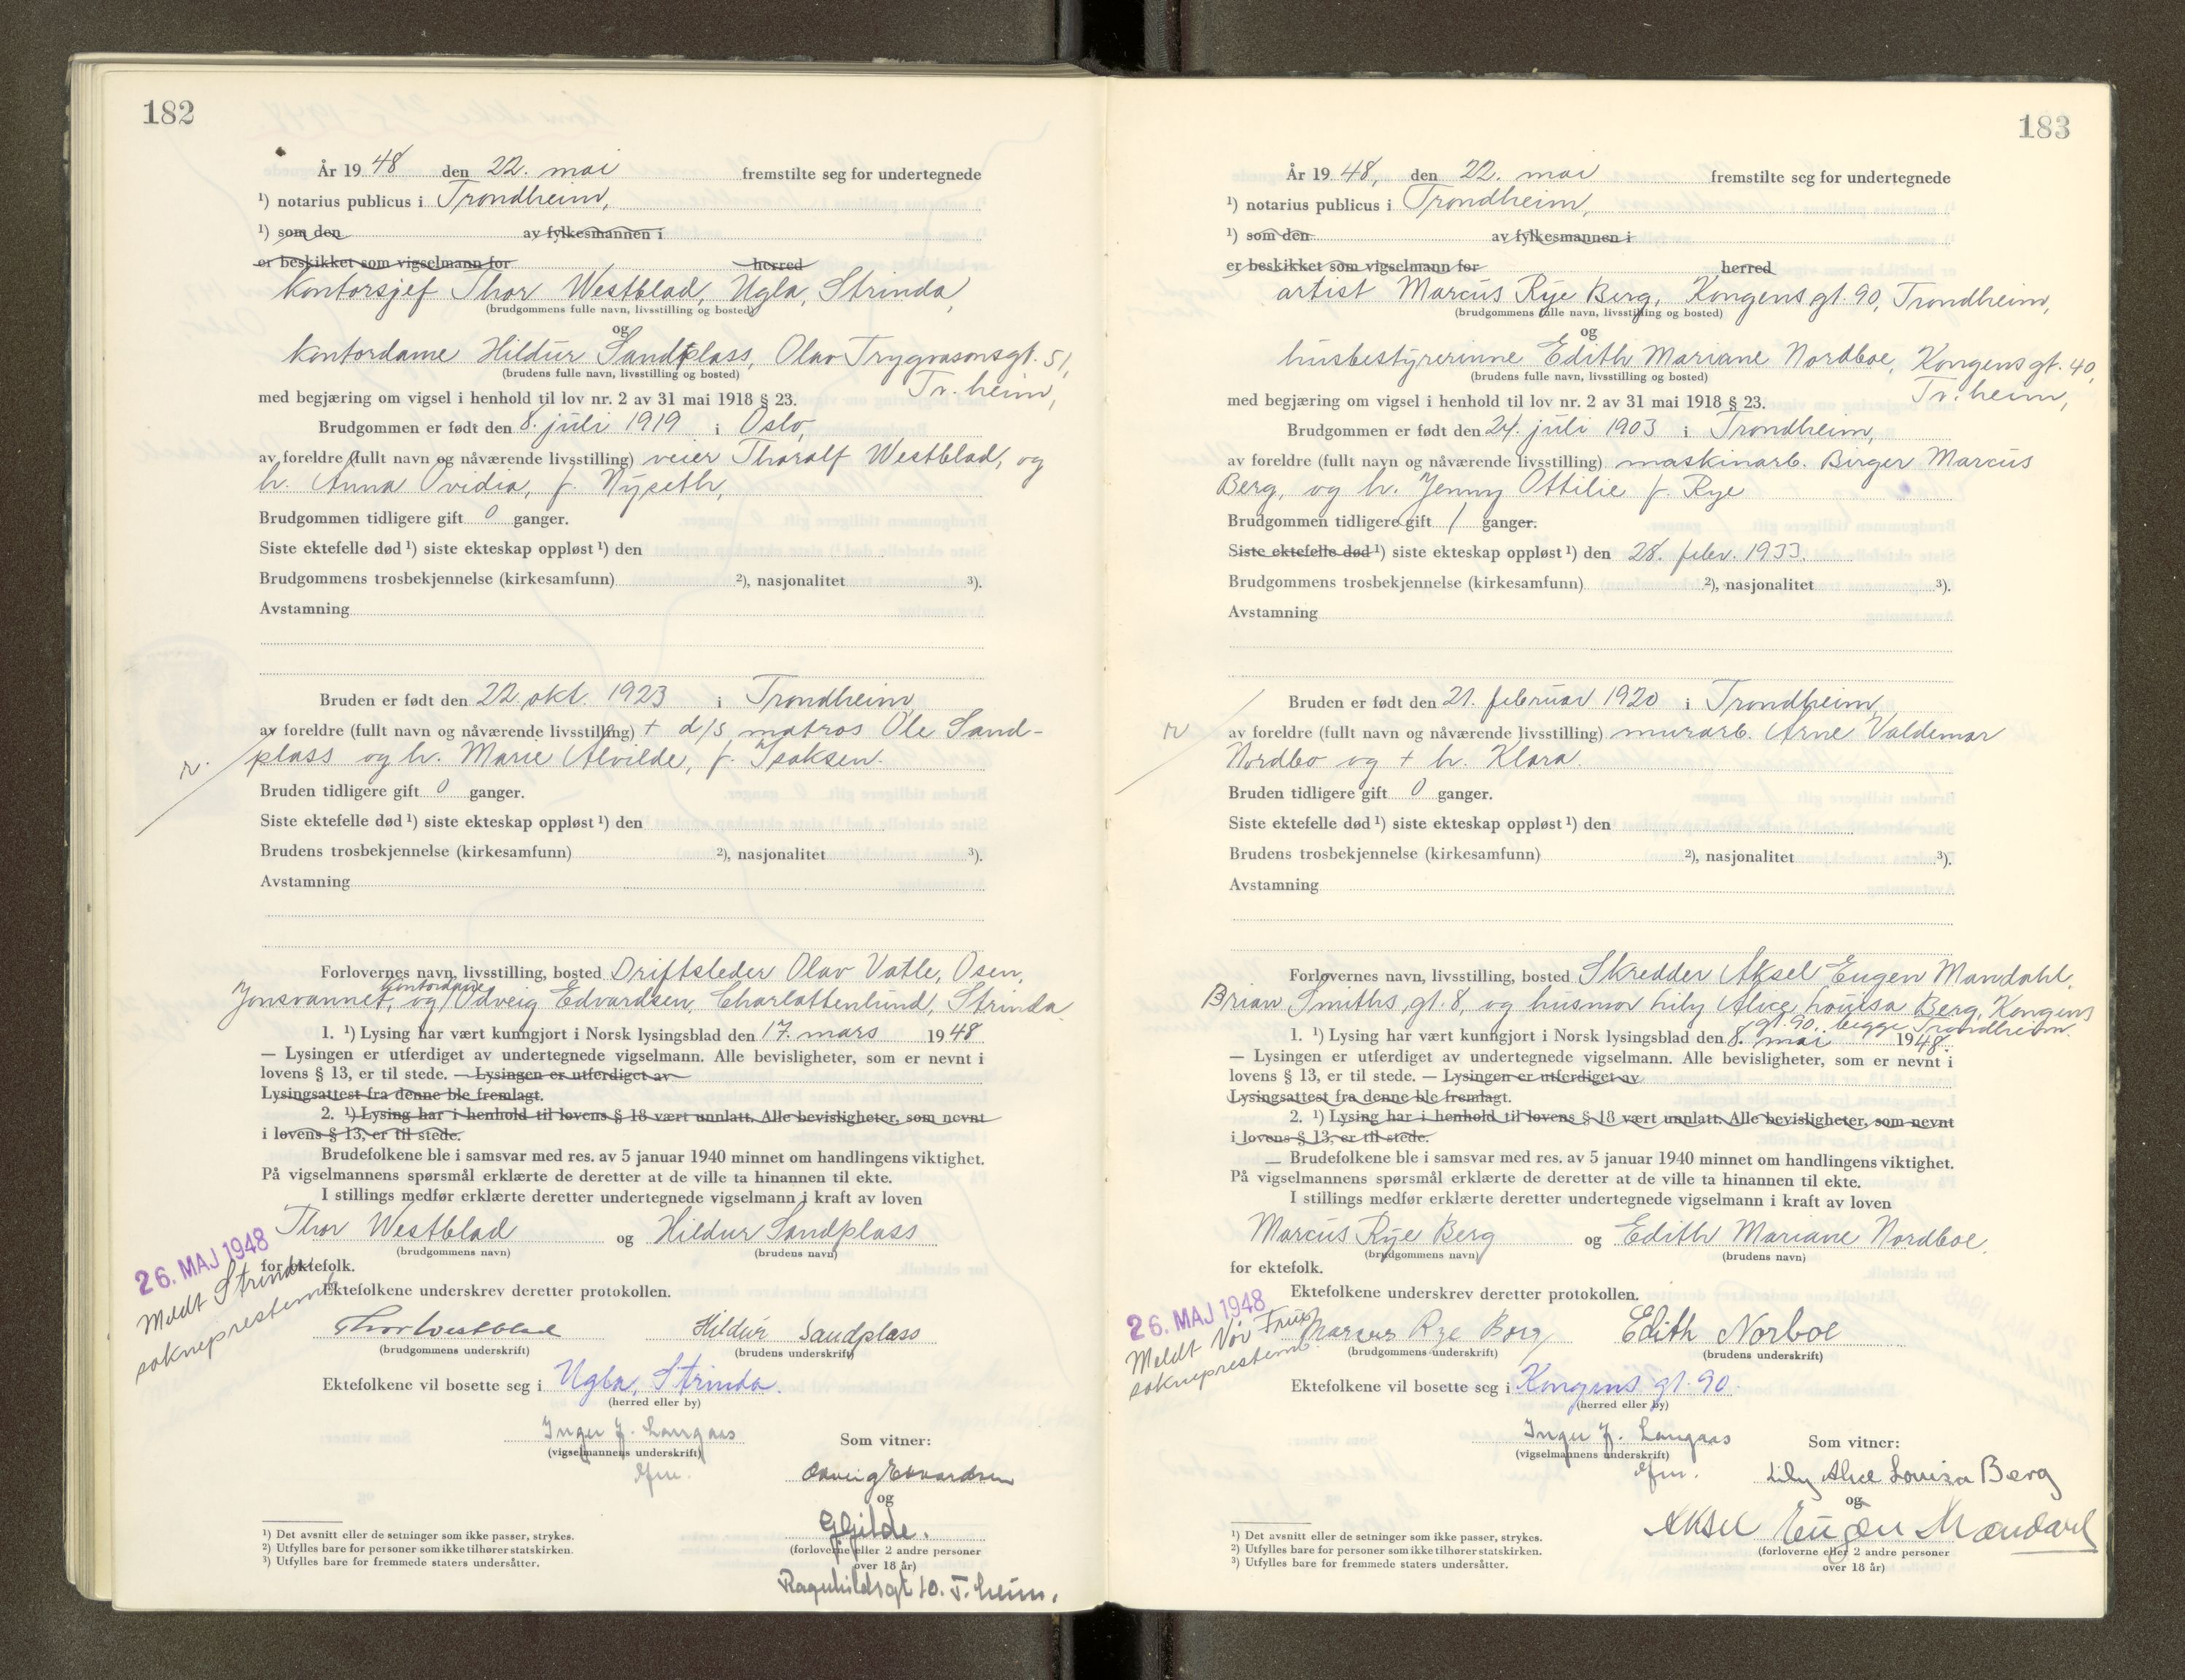 182
År 1948 den 22. mai fremstilte seg for undertegnede
¹) notarius publicus i Trondheim,
¹) som den av fylkesmannen i
er beskikket som vigselmann for herred
Kontorsjef Thor Westblad, Ugla, Strinda,
(brudgommens fulle navn, livsstilling og bosted)
og
kontordame Hildur Sandplass, Olav Trygvasonsgt. 51,
(brudens fulle navn, livsstilling og bosted)
Tr.heim,
med begjæring om vigsel i henhold til lov nr. 2 av 31 mai 1918 § 23.
Brudgommen er født den 8. juli 1919 i Oslo,
av foreldre (fullt navn og nåværende livsstilling) veier Thoralf Westblad, og
h. Anna Ovidia, f. Nyseth,
Brudgommen tidligere gift 0 ganger.
Siste ektefelle død ¹) siste ekteskap oppløst ¹) den
Brudgommens trosbekjennelse (kirkesamfunn) ²), nasjonalitet ³).
Avstamning
Bruden er født den 22. okt. 1923 i Trondheim
av foreldre (fullt navn og nåværende livsstilling) + d/s matros Ole Sand-
plass og h. Marie Alvilde, f. Isaksen.
r.
Bruden tidligere gift 0 ganger.
Siste ektefelle død ¹) siste ekteskap oppløst ¹) den
Brudens trosbekjennelse (kirkesamfunn) ²), nasjonalitet ³).
Avstamning
Forlovernes navn, livsstilling, bosted Driftsleder Olav Vatle, Osen,
kontordame
Jonsvannet, og Odveig Edvardsen, Charlottenlund, Strinda
1. ¹) Lysing har vært kunngjort i Norsk lysingsblad den 17. mars 1948
— Lysingen er utferdiget av undertegnede vigselmann. Alle bevisligheter, som er nevnt i
lovens § 13, er til stede. — Lysingen er utferdiget av
Lysingsattest fra denne ble fremlagt.
2. ¹) Lysing har i henhold til lovens § 18 vært unnlatt. Alle bevisligheter, som nevnt
i lovens § 13, er til stede.
Brudefolkene ble i samsvar med res. av 5 januar 1940 minnet om handlingens viktighet.
På vigselmannens spørsmål erklærte de deretter at de ville ta hinannen til ekte.
I stillings medfør erklærte deretter undertegnede vigselmann i kraft av loven
Thor Westblad og Hildur Sandplass
(brudgommens navn) (brudens navn)
for ektefolk.
26. MAJ 1948
Meldt Strinda
sokneprestemb.
Ektefolkene underskrev deretter protokollen.
Thor Westblad Hildur Sandplass
(brudgommens underskrift) (brudens underskrift)
Ektefolkene vil bosette seg i Ugla, Strinda.
(herred eller by)
Inger J. Langaas
(vigselmannens underskrift)
Som vitner:
Odveig Edvardsen
og
G Gilde.
(forloverne eller 2 andre personer
over 18 år)
Ragnhildsgt 10. T.heim.
¹) Det avsnitt eller de setninger som ikke passer, strykes.
²) Utfylles bare for personer som ikke tilhører statskirken.
³) Utfylles bare for fremmede staters undersåtter.
183
År 1948, den 22. mai fremstilte seg for undertegnede
¹) notarius publicus i Trondheim,
¹) som den av fylkesmannen i
er beskikket som vigselmann for herred
artist Marcus Rye Berg, Kongens gt. 90, Trondheim,
(brudgommens fulle navn, livsstilling og bosted)
og
husbestyrerinne Edith Mariane Nordboe, Kongens gt. 40,
(brudens fulle navn, livsstilling og bosted)
Tr.heim,
med begjæring om vigsel i henhold til lov nr. 2 av 31 mai 1918 § 23.
Brudgommen er født den 24. juli 1903 i Trondheim,
av foreldre (fullt navn og nåværende livsstilling) maskinarb. Birger Marcus
Berg, og h. Jenny Ottilie f. Rye
Brudgommen tidligere gift 1 ganger.
Siste ektefelle død ¹) siste ekteskap oppløst ¹) den 28. febr. 1933.
Brudgommens trosbekjennelse (kirkesamfunn) ²), nasjonalitet ³).
Avstamning
Bruden er født den 21. februar 1920 i Trondheim,
av foreldre (fullt navn og nåværende livsstilling) murarb. Arne Valdemar
Nordbo og + h. Klara
r
Bruden tidligere gift 0 ganger.
Siste ektefelle død ¹) siste ekteskap oppløst ¹) den
Brudens trosbekjennelse (kirkesamfunn) ²), nasjonalitet ³).
Avstamning
Forlovernes navn, livsstilling, bosted Skredder Aksel Eugen Mandahl,
Brian Smiths gt. 8, og husmor Lily Alice Louisa Berg, Kongens
gt. 90, begge Trondheim.
1. ¹) Lysing har vært kunngjort i Norsk lysingsblad den 8. mai 1948.
— Lysingen er utferdiget av undertegnede vigselmann. Alle bevisligheter, som er nevnt i
lovens § 13, er til stede. — Lysingen er utferdiget av
Lysingsattest fra denne ble fremlagt.
2. ¹) Lysing har i henhold til lovens § 18 vært unnlatt. Alle bevisligheter, som nevnt
i lovens § 13, er til stede.
— Brudefolkene ble i samsvar med res. av 5 januar 1940 minnet om handlingens viktighet.
På vigselmannens spørsmål erklærte de deretter at de ville ta hinannen til ekte.
I stillings medfør erklærte deretter undertegnede vigselmann i kraft av loven
Marcus Rye Berg og Edith Mariane Nordboe.
(brudgommens navn) (brudens navn)
for ektefolk.
Ektefolkene underskrev deretter protokollen.
26. MAJ 1948
Meldt Vår Frue
sokneprestemb.
Marcus Rye Berg Edith Norboe
(brudgommens underskrift) (brudens underskrift)
Ektefolkene vil bosette seg i Kongens gt. 90.
(herred eller by)
Inger J. Langaas
(vigselmannens underskrift)
Som vitner:
Lily Alice Louisa Berg
og
Aksel Eugen Mandahl
(forloverne eller 2 andre personer
over 18 år)
¹) Det avsnitt eller de setninger som ikke passer, strykes.
²) Utfylles bare for personer som ikke tilhører statskirken.
³) Utfylles bare for fremmede staters undersåtter.